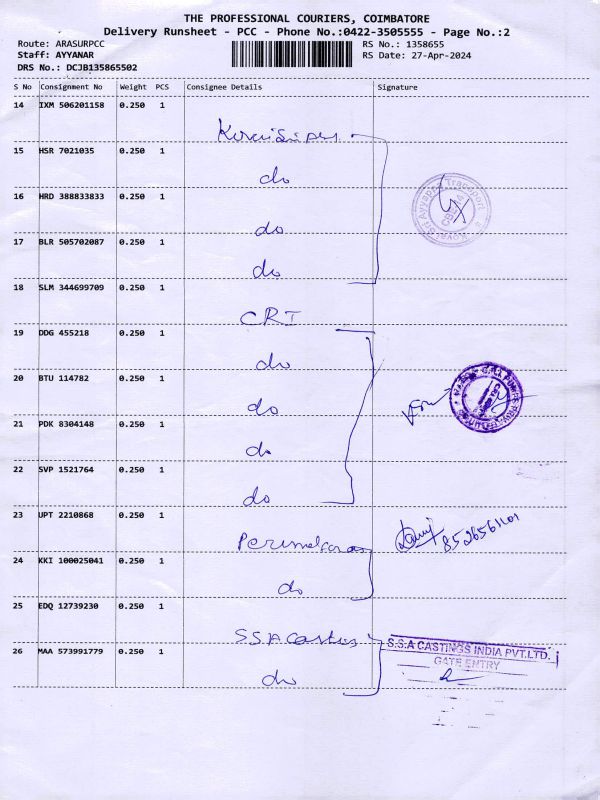 THE PROFESSIONAL COURIERS, COIMBATORE
Delivery Runsheet - PCC - Phone No.:0422-3505555 - Page No.:2
Route: ARASURPCC
RS No.: 1358655
Staff: AYYANAR
RS Date: 27-Apr-2024
DRS No.: DCJB135865502
S No Consignment No Weight PCS Consignee Details Signature
14 IXM 506201158 0.250 1
15 HSR 7021035 0.250 1
do
16 HRD 388833833 0.250 1
do
17 BLR 505702087 0.250 1
do
Sri Ayyappa Transport
18 SLM 344699709 0.250 1
CRI
19 DDG 455218 0.250 1
do
20 BTU 114782 0.250 1
do
21 PDK 8304148 0.250 1
do
22 SVP 1521764 0.250 1
do
23 UPT 2210868 0.250 1
24 KKI 100025041 0.250 1
do
25 EDQ 12739230 0.250 1
SSA
S.S.A CASTINGS INDIA PVT.LTD.
GATE ENTRY
26 MAA 573991779 0.250 1
do